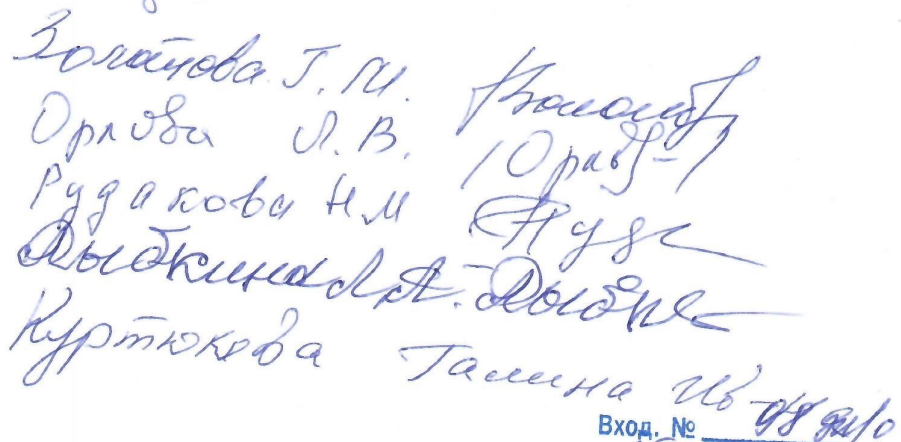 Золотова Г. М.
Орлова Л. В. /Орлов-/
Рудакова Н М Руд
Рыбкина Л А. Рыбк
Куртюкова Галина Ив
Вход. №